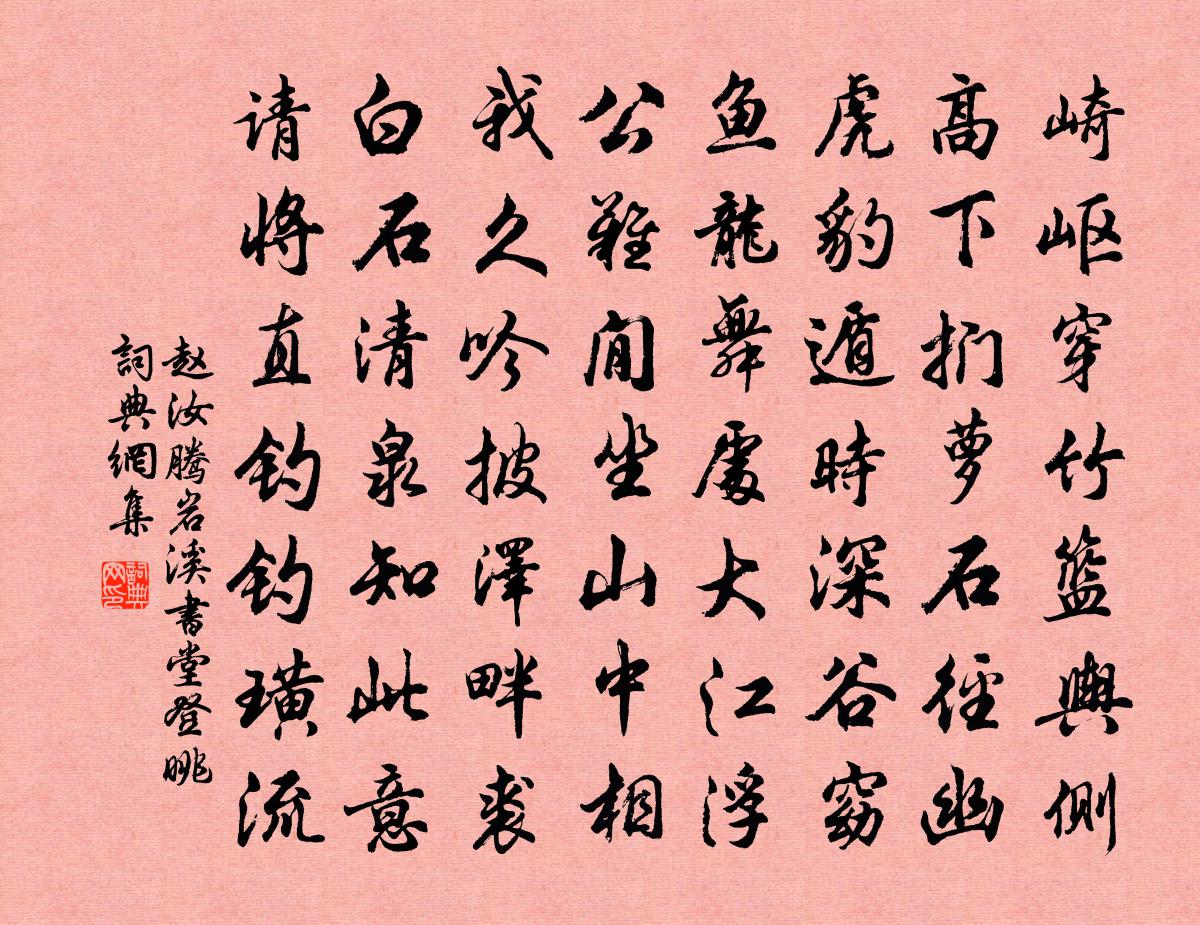 崎岖穿竹篮輿侧
高下扪萝石徑幽
虎豹遁時深谷窈
鱼龍舞處大江浮
公難间坐山中相
我久吟披澤畔裘
白石清泉知此意
请将直钓钓璜流
赵汝腾岩溪書堂登眺
詞典網集
詞典网印